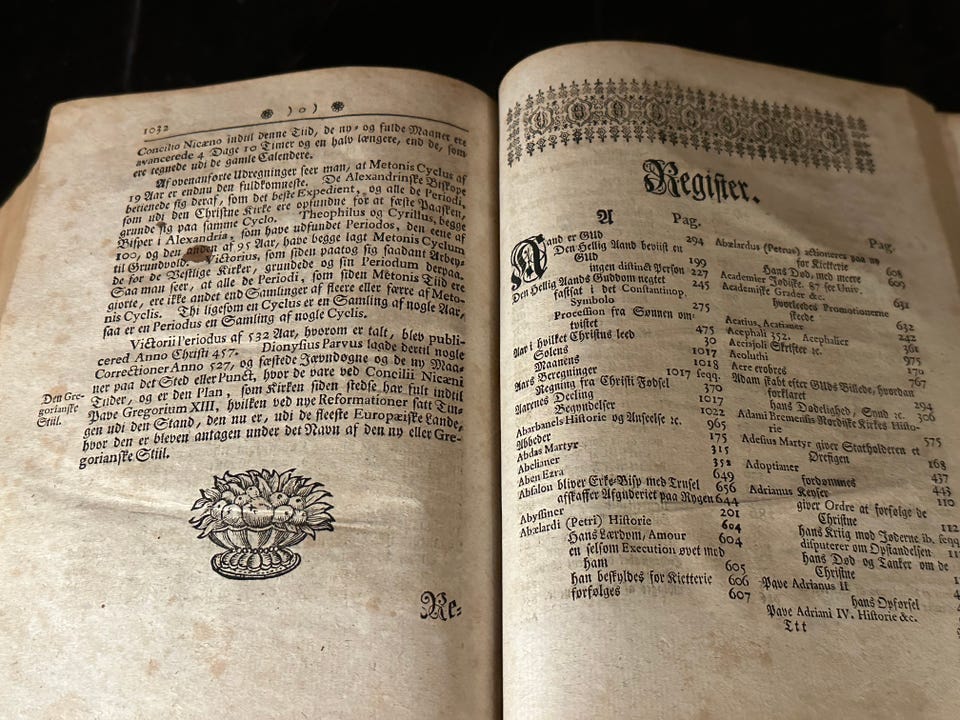 1032
) o )
Concilio Nicæno indtil denne Tiid, de ny- og fulde Maaner ere
avancerede 4 Dage 10 Timer og en halv længere, end de, som
ere tegnede udi de gamle Calendere.
Af ovenanførte Udregninger seer man, at Metonis Cyclus af
19 Aar er endnu den fuldkomneste. De Alexandrinske Biskope
betienede sig deraf, som det beste Expedient, og alle de Periodi,
som udi den Christne Kirke ere opfundne for at fæste Paasken,
grunde sig paa samme Cyclo. Theophilus og Cyrillus, begge
Bisper i Alexandria, som have udfundet Periodos, den eene af
100, og den anden af 95 Aar, have begge lagt Metonis Cyclum
til Grundvold. Victorius, som siden paatog sig saadant Arbeyde
for de Vestlige Kirker, grundede og sin Periodum derpaa.
Saa man seer, at alle de Periodi, som siden Metonis Tiid ere
giorte, ere ikke andet end Samlinger af fleere eller færre af Meto-
nis Cyclis. Thi ligesom en Cyclus er en Samling af nogle Aar,
saa er en Periodus en Samling af nogle Cyclis.
Victorii Periodus af 532 Aar, hvorom er talt, blev publi-
cered Anno Christi 457. Dionysius Parvus lagde dertil nogle
Correctioner Anno 527, og fæstede Jævndøgne og de ny Maa-
ner paa det Sted eller Punct, hvor de vare ved Concilii Nicæni
Tider, og er den Plan, som Kirken siden stedse har fult indtil
Den Gre-
gorianske
Stiil.
Pave Gregorium XIII, hvilken ved nye Reformationer satt Tin-
gen udi den Stand, den nu er, udi de fleeste Europæiske Lande,
hvor den er bleven antagen under det Navn af den ny eller Gre-
gorianske Stiil.
Re-
Register.
A Pag.
Aand er Gud 294
Den Hellig Aand beviist en
Gud 199
ingen distinct Person 227
Den Hellig Aands Guddom negtet 245
fastsat i det Constantinop.
Symbolo 275
Procession fra Sønnen om-
tvistet 475
Aar i hvilket Christus leed 30
Solens 1017
Maanens 1018
Aars Beregninger 1017 seqq.
Regning fra Christi Fødsel 370
Aarenes Deeling 1017
Begyndelser 1022
Abarbanels Historie og Anseelse ꝛc. 965
Abbeder 175
Abdas Martyr 315
Abelianer 352
Aben Ezra 649
Absalon bliver Erke-Bisp med Trusel 656
afskaffer Afguderiet paa Rygen 644
Abyssiner 201
Abælardi (Petri) Historie 604
Hans Lærdom, Amour 604
en selsom Execution øvet med
ham 605
han beskyldes for Kietterie 606
forfølges 607
Pag.
Abælardus (Petrus) actioneres paa ny
for Kietterie 608
Hans Død, med meere 609
Academier Jødiske. 87 see Univ.
Academiske Grader &c. 631
hvorledes Promotionerne
skede 632
Acatius, Acatianer 242
Acephali 352. Acephalier 361
Skrifter ꝛc. 975
Acoluthi 170
Aere erobres 767
Adam skabt efter Guds Billede, hvordan
forklaret 294
hans Dødelighed, Synd ꝛc. 306
Adami Bremensis Nordiske Kirkes Histo-
rie 575
Adesius Martyr giver Statholderen et
Ørefigen 168
Adoptianer 437
fordømmes 443
Adrianus Keyser 110
giver Ordre at forfølge de
Christne 112
hans Kriig mod Jøderne ib. seqq.
disputerer om Opstandelsen
hans Død og Tanker om de
Christne
Pave Adrianus II
hans Opførsel
Pave Adriani IV. Historie &c.
Ttt